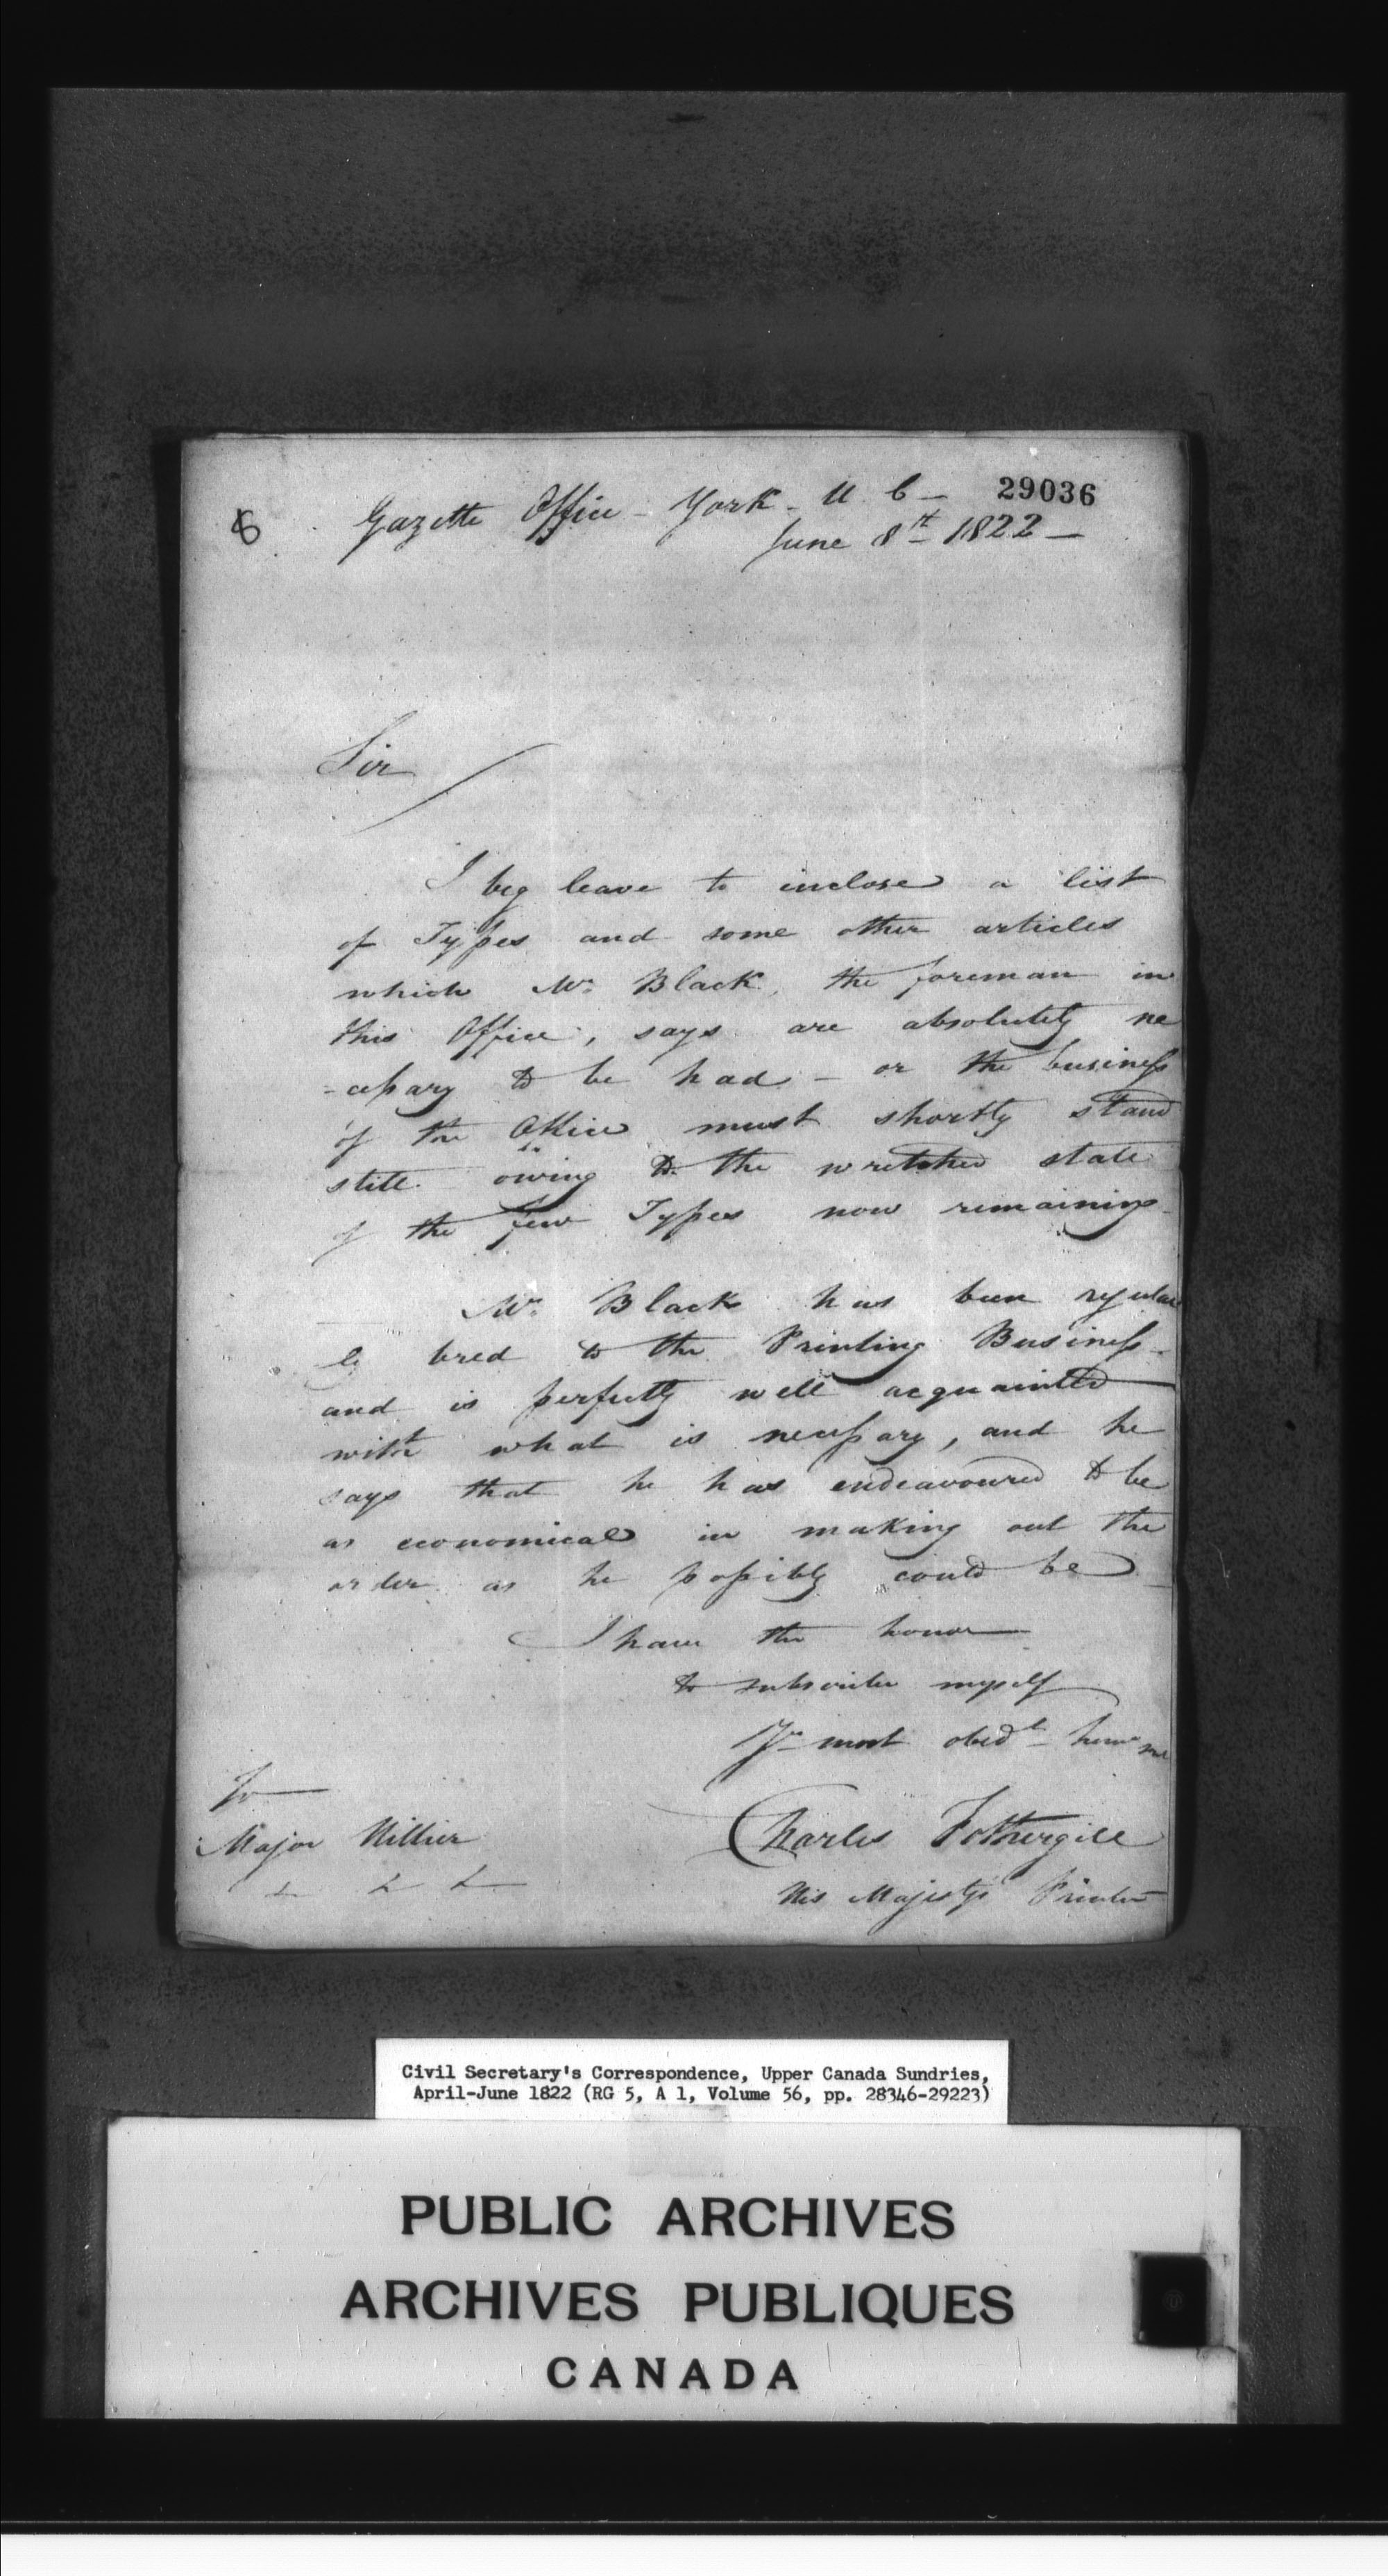 29036
6
Gazette Office - York - U C -
June 8th 1822 -
Sir
I beg leave to inclose a list
of Types and some other articles
which Mr. Black, the foreman in
this Office, says are absolutely ne
-cessary to be had - or the business
of the Office must shortly stand
still owing to the wretched state
of the few Types now remaining
Mr. Black has been regular
ly bred to the Printing Business -
and is perfectly well acquainted
with what is necessary, and he
says that he has endeavoured to be
as economical in making out the
order as he possibly could be
I have the honor
to subscribe myself
Yr most obedt
To
Major Hillier
Charles Fothergill
His Majestys Printer
Civil Secretary's Correspondence, Upper Canada Sundries,
April-June 1822 (RG 5, A 1, Volume 56, pp. 28346-29223)
PUBLIC ARCHIVES
ARCHIVES PUBLIQUES
CANADA